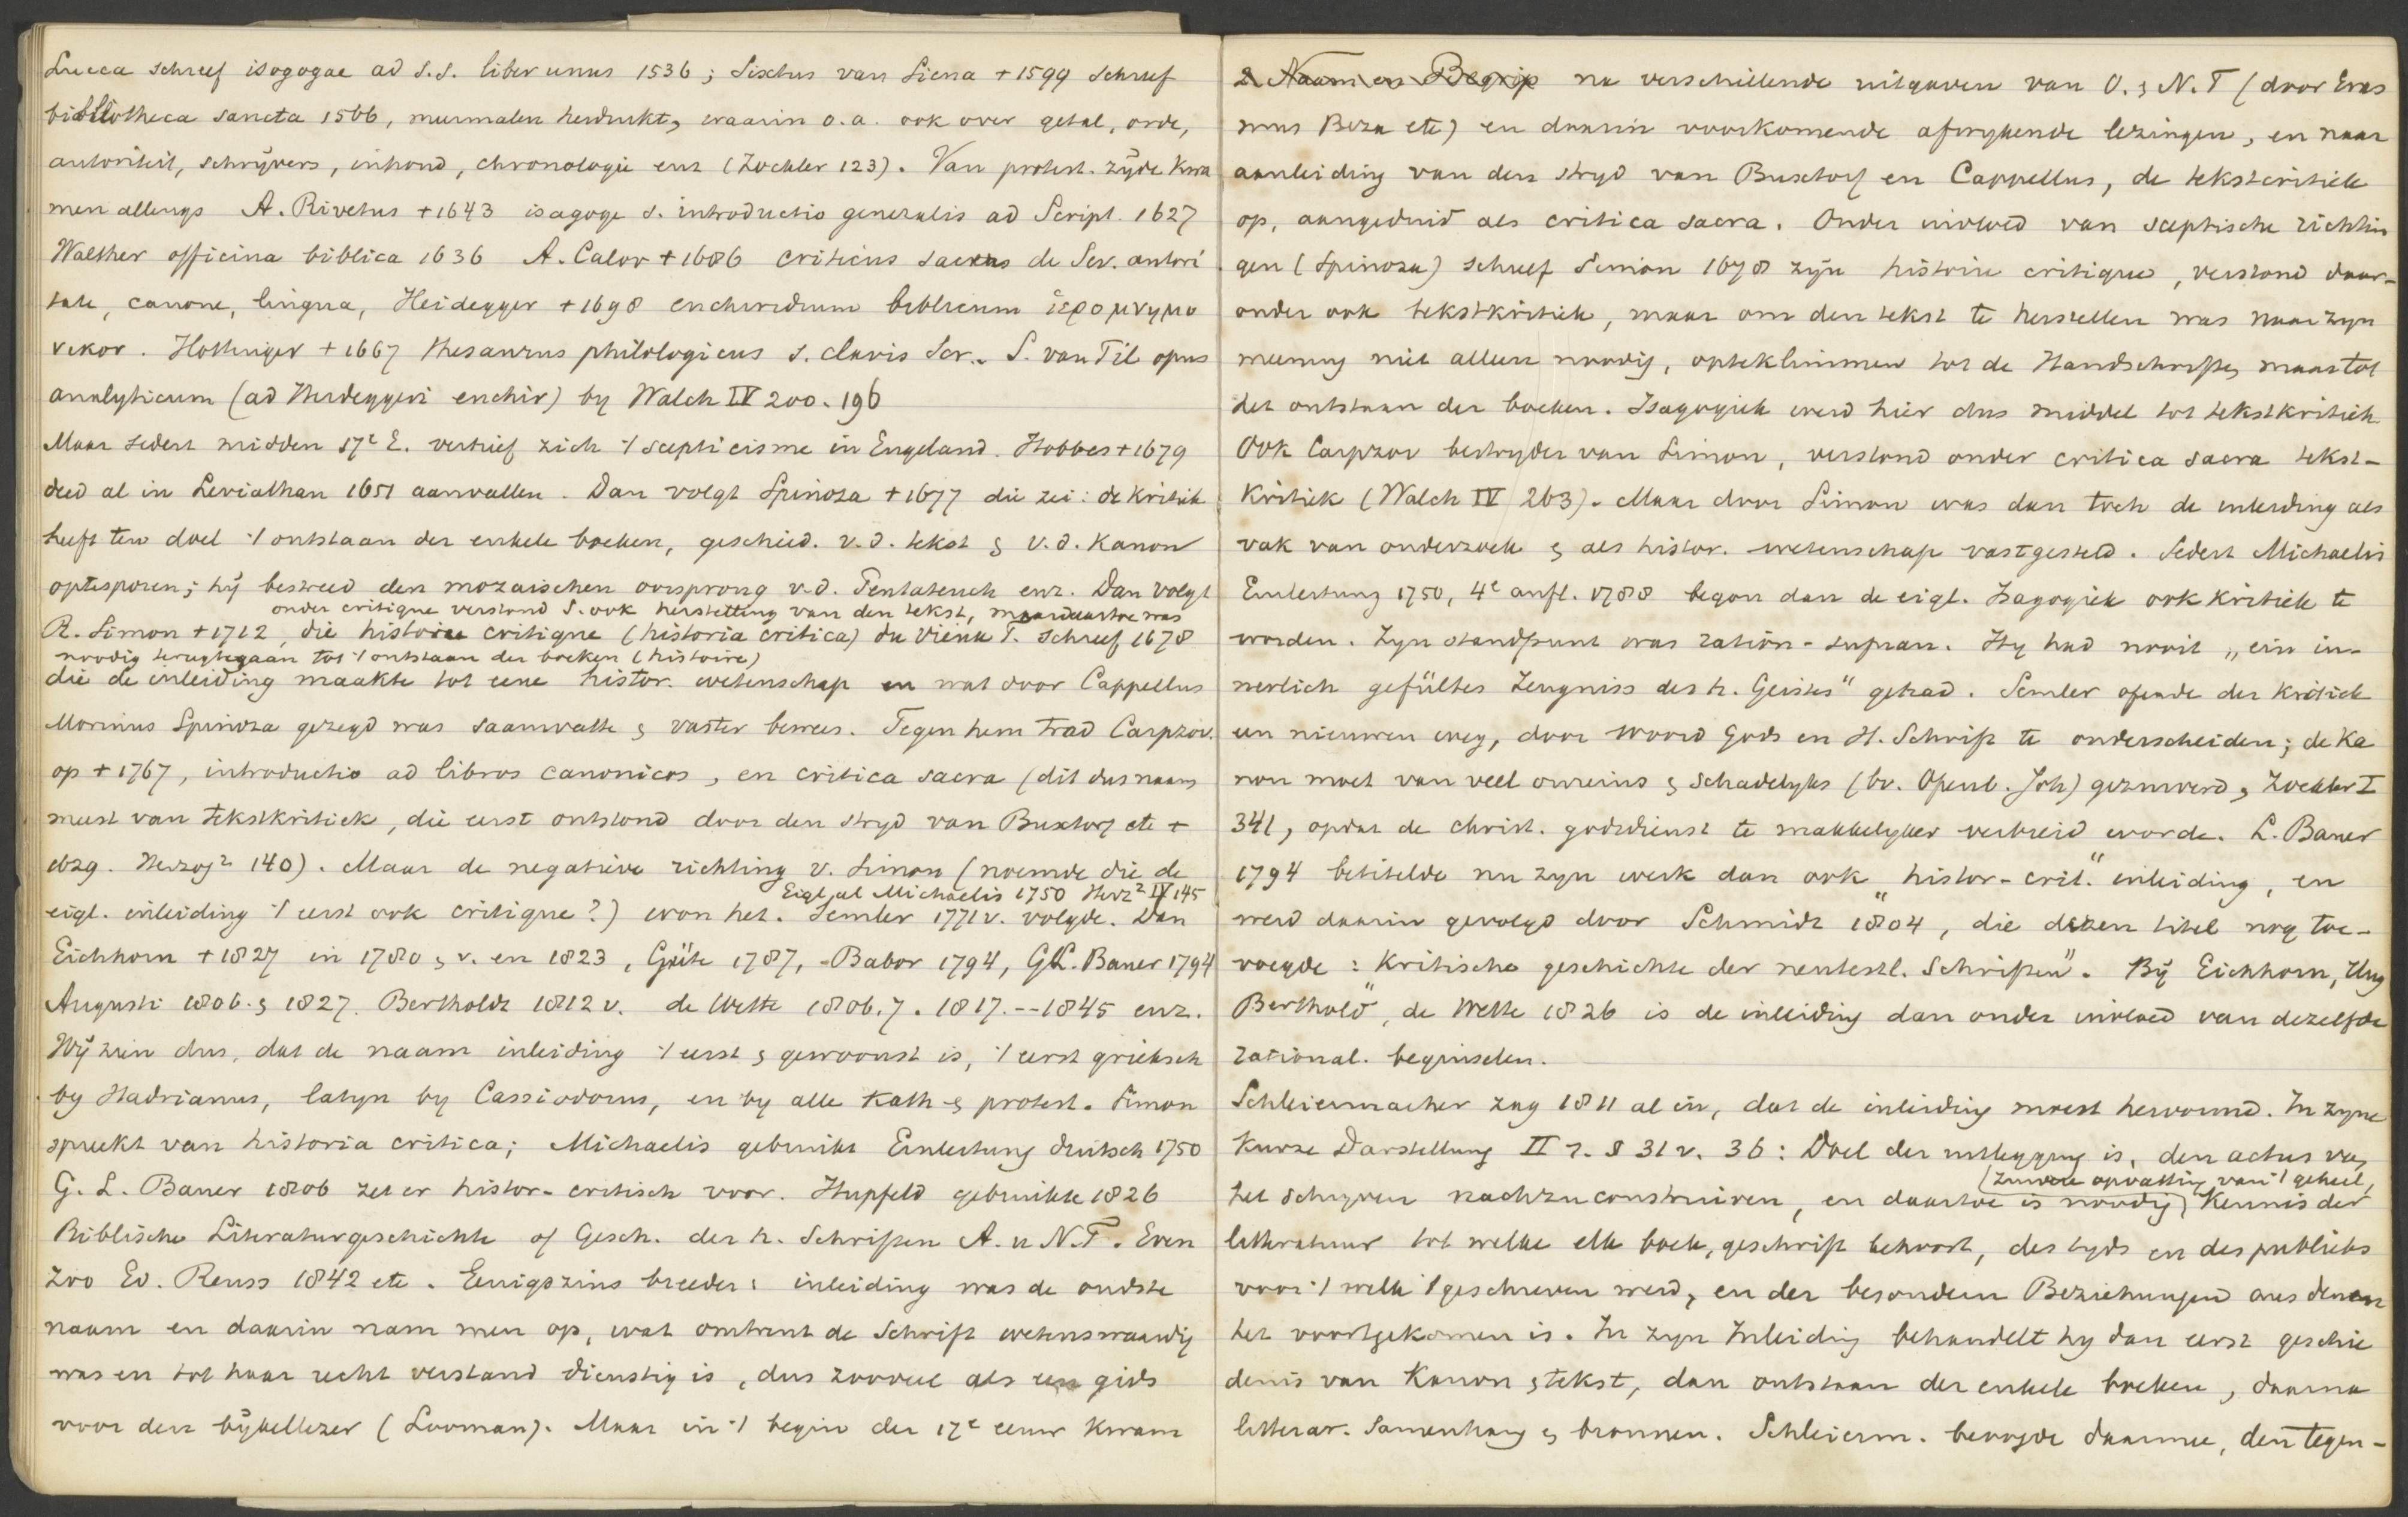 Lucca schreef isagogae ad s.s. liber unus 1536; Sixtus van Siena + 1599 schreef
bibliotheca sancta 1566, meermalen herdrukt, waarin o.a. ook over getal, orde,
autoriteit, schrijvers, inhoud, chronologie enz (Zockler 123). Van protest. zijde kwa
men allengs A. Rivetus + 1643 isagoge s. introductio generalis ad Script. 1627
Walther officina biblica 1636 A. Calov + 1686 criticus sacrus de Scr. autori
tate, canone, lingua, Heidegger + 1698 enchiridium biblicum ἱερομνημο
νικον. Hottinger + 1667 thesaurus philologicus s. clavis Scr. S. van Til opus
analyticum (ad Heideggeri enchir) by Walch IV 200. 196
Maar sedert midden 17e E. verhief zich 't scepticisme in Engeland. Hobbes + 1679
deed al in Leviathan 1651 aanvallen. Dan volgt Spinoza + 1677 die zei: de kritiek
heeft ten doel 't ontstaan der enkele boeken, geschied. v.d. tekst & v.d. Kanon
optesporen; hij bestreed den mozaischen oorsprong v.d. Pentateuch enz. Dan volgt
onder critique verstond S. ook herstelling van den tekst, maar daartoe was
R. Simon + 1712, die histoire critique (historia critica) du Vieux T. schreef 1678
noodig terugtegaan tot 't ontstaan der boeken (histoire)
die de inleiding maakte tot eene histor. wetenschap en wat door Cappellus
Morinus Spinoza gezegd was saamvatte & vaster bewees. Tegen hem trad Carpzov.
op + 1767, introductio ad libros canonicos, en critica sacra (dit dus naam
meest van tekstkritiek, die eerst ontstond door den stryd van Buxtorf etc +
Herzog² 140). Maar de negatieve richting v. Simon (noemde die de
Eigl. al Michaelis 1750 Herz² IV 145
eigl. inleiding 't eerst ook critique?) won het. Semler 1771 v. volgde. Dan
Eichhorn + 1827 in 1780 & v. en 1823, Güte 1787, Babor 1794, G.L. Bauer 1794
Augusti 1806. & 1827. Bertholdt 1812 v. de Wette 1806.7. 1817. -- 1845 enz.
Wij zien dus, dat de naam inleiding 't eerst & gewoonst is, 't eerst grieksch
by Hadrianus, latyn by Cassiodorus, en by alle kath & protest. Simon
spreekt van historia critica; Michaelis gebruikt Einleitung duitsch 1750
G. L. Bauer 1806 zet er histor-critisch voor. Hupfeld gebruikte 1826
Biblische Literaturgeschichte of Gesch. der h. Schriften A. u N.T. Even
zoo Ed. Reuss 1842 etc. Eenigszins breeder: inleiding was de oudste
naam en daarin nam men op, wat omtrent de Schrift wetenswaardig
was en tot haar recht verstand dienstig is, dus zooveel als een gids
voor den bijbellezer (Looman). Maar in 't begin der 17e eeuw kwam
2 Naam en Begrip na verschillende uitgaven van O. & N.T (door Eras
mus Beza etc) en daarin voorkomende afwykende lezingen, en naar
aanleiding van den stryd van Buxtorf en Cappellus, de tekstcritiek
op, aangeduid als critica sacra. Onder invloed van sceptische richtin
gen (Spinoza) schreef Simon 1678 zyn histoire critique, verstond daar-
onder ook tekstkritiek, maar om den tekst te herstellen was naar zyn
meening niet alleen noodig, opteklimmen tot de Handschriften, maar tot
het ontstaan der boeken. Isagogiek werd hier dus middel tot tekstkritiek
Ook Carpzov bestryder van Simon, verstond onder critica sacra tekst-
kritiek (Walch IV 263). Maar door Simon was dan toch de inleiding als
vak van onderzoek & als histor. wetenschap vastgesteld. Sedert Michaelis
Einleitung 1750, 4e aufl. 1788 begon dan de eigl. Isagogiek ook kritiek te
worden. Zyn standpunt was ration-supran. Hy had nooit „ein in-
nerlich gefültes Zeugniss des h. Geistes" gehad. Semler opende der kritiek
een nieuwen weg, door woord Gods en H. Schrift te onderscheiden; de Ka
non moet van veel onreins & schadelyks (bv. Openb. Joh) gezuiverd, Zockler I
341, opdat de christ. godsdienst te makkelyker verbreid worde. L. Bauer
1794 betitelde nu zyn werk dan ook „histor-crit." inleiding, en
werd daarin gevolgd door Schmidt 1804, die dezen titel nog toe-
voegde: „Kritische geschichte der neutestl. Schriften". Bij Eichhorn, Hug
Berthold, de Wette 1826 is de inleiding dan onder invloed van dezelfde
rational. beginselen.
Schleiermacher zag 1811 al in, dat de inleiding moest hervormd. In zyne
Kurze Darstellung II § 31 v. 36: Doel der uitlegging is, den actus van
(zuivere opvatting van 't geheel,
het schryven nachzuconstruiren, en daartoe is noodig) Kennis der
litteratuur tot welke elk boek, geschrift behoort, des tyds en des publieks
voor 't welk 't geschreven werd, en der besondern Beziehungen aus denen
het voortgekomen is. In zyn Inleiding behandelt hy dan eerst geschie
denis van Kanon & tekst, dan ontstaan der enkele boeken, daarna
litterar. Samenhang & bronnen. Schleierm. beoogde daarmee, den tegen-